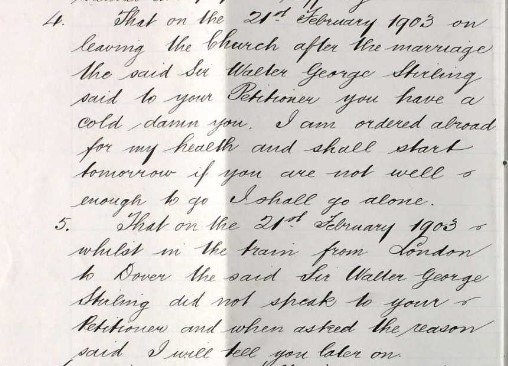 4. That on the 21st February 1903 on
leaving the Church after the marriage
the said Sir Walter George Stirling
said to your Petitioner you have a
cold damn you. I am ordered abroad
for my health and shall start
tomorrow if you are not well
enough to go I shall go alone.
5. That on the 21st February 1903
whilst in the train from London
to Dover the said Sir Walter George
Stirling did not speak to your
Petitioner and when asked the reason
said I will tell you later on